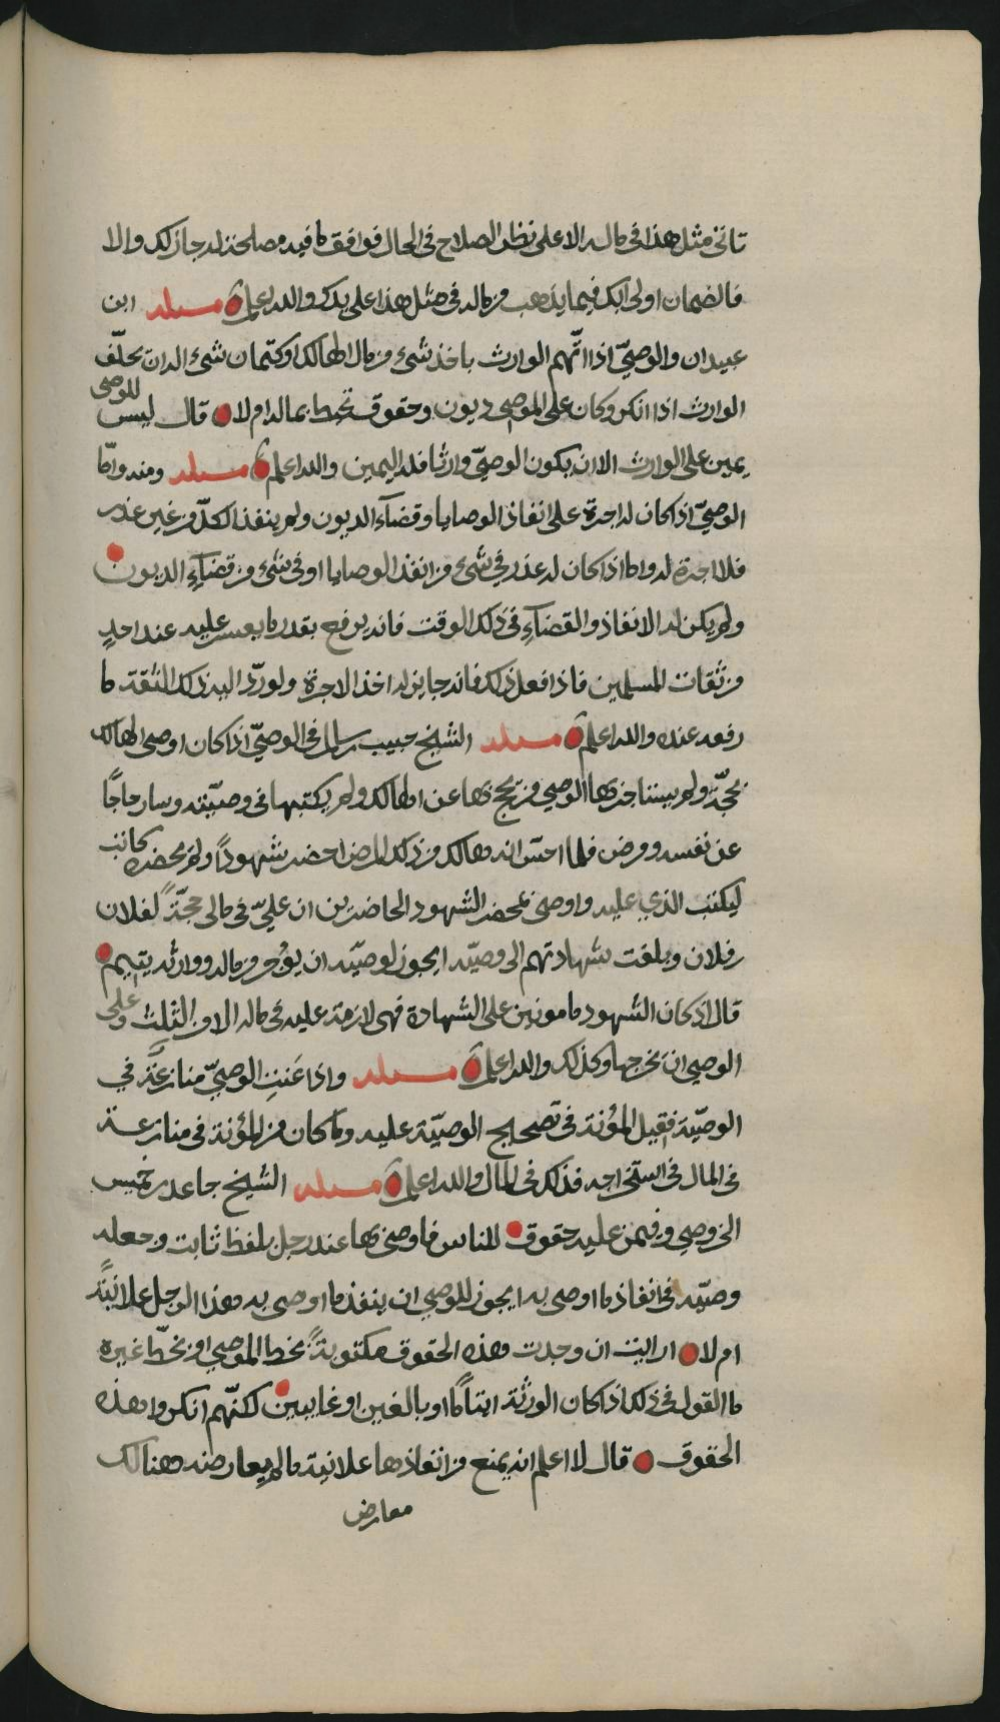 تاتى مثل هذا فى ماله الا على نظر الصلاح فى الحال فوافق ما فيه مصلحة له جاز لك والا
فالضمان اولى بك فيما يذهب من ماله فى مثل هذا على يدك والله اعلم مسئله ابن
عبيدان والوصىّ اذا اتّهم الوارث باخذ شىء من مال الهالك او كتمان شىء اله ان يحلّف
الوارث اذا انكر وكان على الموصى ديون وحقوق تحيط بماله ام لا قال ليس للوصى
يمين على الوارث الا ان يكون الوصىّ وارثا فله اليمين والله اعلم مسئله ومنه وامّا
الوصىّ اذا كان له اجرة على انفاذ الوصايا وقضآء الديون ولم ينفذ الكلّ من غير عذر
فلا اجرة له واما اذا كان له عذر فى شىء من انفذ الوصايا او فى شىء من قضآء الديون
ولم يكن له الانفاذ والقضآء فى ذلك الوقت فانه يرفع بقدر ما يعسر عليه عند احدٍ
من ثقات المسلمين فاذا فعل ذلك فانه جايز له اخذ الاجرة ولو ردّ اليه ذلك الثقة ما
رفعه عنده والله اعلم مسئله الشيخ حبيب بن سالم فى الوصىّ اذا كان اوصى الهالك
بحجّة ولم يستاجر لها الوصى من يحج بها عن الهالك ولم يكتبها فى وصيّته وسار حاجّا
عن نفسه ومرض فلما احسّ انه هالك من ذلك المرض احضر شهوداً ولم يحضره كاتب
ليكتب الذي عليه واوصى بمحضر الشهود الحاضرين ان علىّ فى مالى حجّةً لفلان
بن فلان وبلغت شهادتهم الى وصيّه ايجوز لوصيّه ان يؤجر من ماله ووارثه يتيم
قال اذا كان الشهود مامونين على الشهادة فهى لازمة عليه فى ماله الا من الثلث وعلى
الوصى ان يخرجها وكذلك والله اعلم مسئله واذا عَنَتِ الوصىّ منازعَةٌ في
الوصيّة فقيل المؤنة فى تصحيح الوصيّة عليه وما كان من المؤنة فى منازعة
فى المال فى استخراجه فذلك فى المال والله اعلم مسئله الشيخ جاعد بن خميس
الخروصى وفيمن عليه حقوق للناس فاوصى بها عند رجل بلفظ ثابت وجعله
وصيّه فى انفاذ ما اوصى به ايجوز للوصى ان ينفذ ما اوصى به هذا الرجل علانيّةً
ام لا ارايت ان وجدت هذه الحقوق مكتوبةً بخط الموصى او بخطّ غيره
ما القول فى ذلك اذا كان الورثة ايتاما او بالغين او غايبين لكنّهم انكروا هذه
الحقوق قال لا اعلم انه يمنع من انفاذها علانية ما لم يعارضه هنالك
معارض